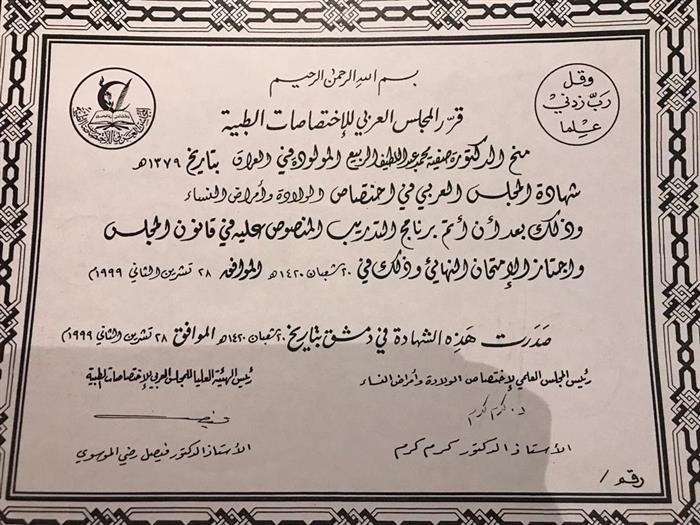 بسم الله الرحمن الرحيم
وقل
رب زدني
علما
قرر المجلس العربي للإختصاصات الطبية
منح الدكتورة صفية محمد عبد اللطيف الربيع المولود في العراق بتاريخ ١٣٧٩هـ
شهادة المجلس العربي في اختصاص الولادة وأمراض النساء
وذلك بعد أن أتم برنامج التدريب المنصوص عليه في قانون المجلس
واجتاز الإمتحان النهائي وذلك في ٢٠ شعبان ١٤٢٠هـ الموافق ٢٨ تشرين الثاني ١٩٩٩م
صدرت هذه الشهادة في دمشق بتاريخ ٢٠ شعبان ١٤٢٠هـ الموافق ٢٨ تشرين الثاني ١٩٩٩م
رئيس المجلس العلمي لإختصاص الولادة وأمراض النساء
رئيس الهيئة العليا للمجلس العربي للإختصاصات الطبية
د. كرم كرم
الأستاذ الدكتور كرم كرم
الأستاذ الدكتور فيصل رضي الموسوي
رقم /